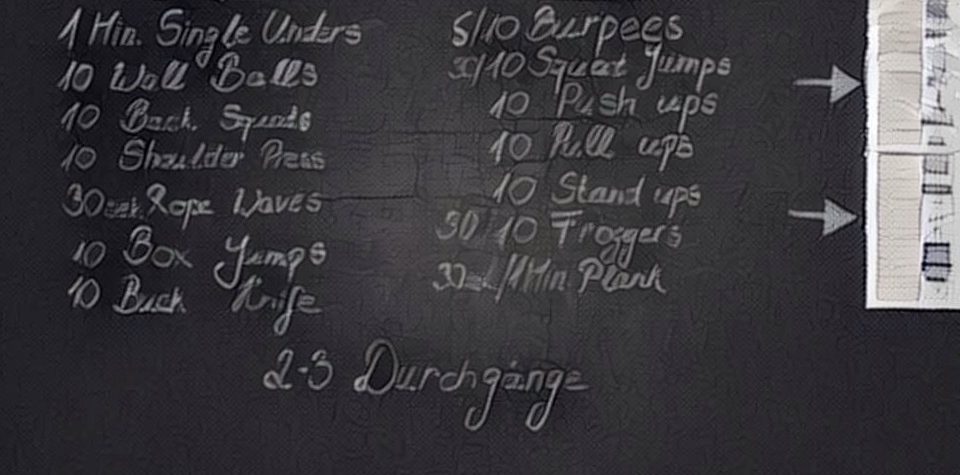 1 Min. Single Unders
10 Wall Balls
10 Back Squats
10 Shoulder Press
30sek Rope Waves
10 Box Jumps
10 Buck Knife
5/10 Burpees
30/10 Squat Jumps
10 Push ups
10 Pull ups
10 Stand ups
30/10 Froggers
30sek/1Min Plank
2-3 Durchgänge